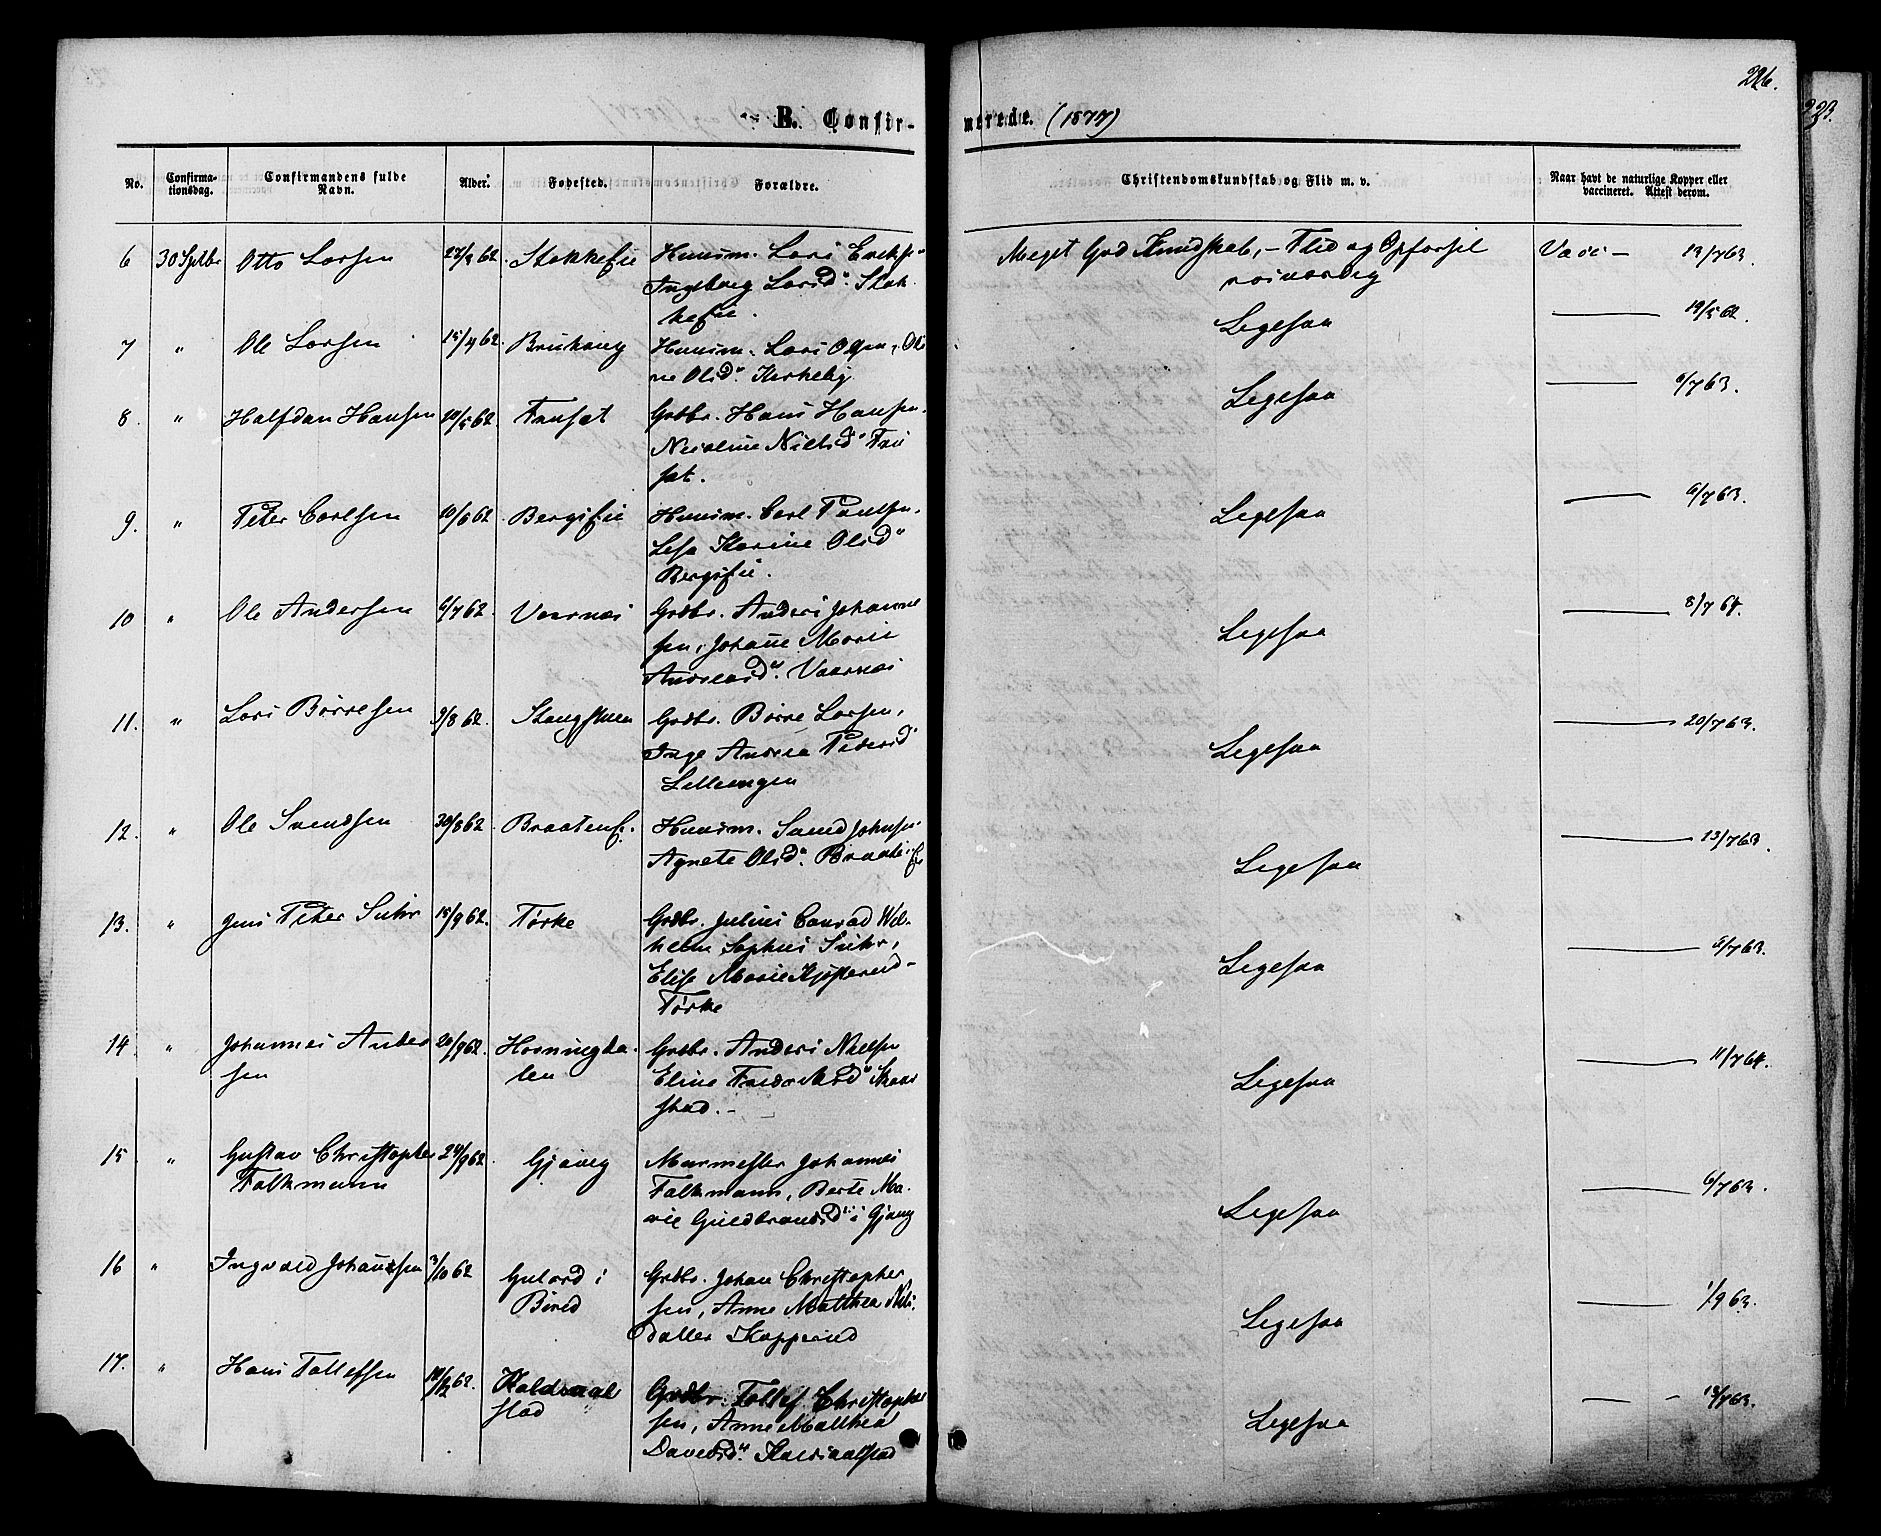 226.
223.
B. Confir-
merede. (1877)
No.
Confirma-
tionsdag.
Confirmandens fulde
Navn.
Alder.
Fødested.
Forældre.
Christendomskundskab og Flid m. v.
Naar havt de naturlige Kopper eller
vaccineret. Attest derom.
6 30 Septbr Otto Larsen 27/3 62. Stokkeeie Huusm. Lars Eriksen
Ingeborg Larsd. Stok
keeie.
Meget God Kundskab, - Flid og Opførsel
roisværdig
Vacc - 13/7 63.
7 " Ole Larsen 15/4 62. Huusm. Lars Olsen, Oli
ne Olsd. Kirkeby
Ligesaa 19/5 62.
8. " Halfdan Hansen 10/5 62. Grdbr. Hans Hansen.
Nicoline Nielsd.
sat.
Ligesaa 6/7 63.
9. " Peter Carlsen 10/6 62 Bergseie Huusm. Carl Paulsen.
Lisa Karine Olsd
Bergseie.
Ligesaa 6/7 63.
10 " Ole Andersen 6/7 62. Vaarnæs Grdbr. Anders Johanne
sen, Johane Marie
Andreasd. Vaarnæs
Ligesaa 8/7 64.
11. " Lars Børresen 9/8 62. Grdbr. Børre Larsen,
Inge Andrea Pedersd
Lilleengen
Ligesaa 20/7 63.
12. " Ole Svendsen 30/8 62. Braatene. Huusm. Svend Johnsen.
Agnete Olsd. Braatene
Ligesaa 13/7 63.
13. " Jens Peter Suhr 15/9 62. Tørke Grdbr. Julius Conrad Wil-
helm Sophus Suhr,
Elise Marie
Tørke
Ligesaa 6/7 63.
14. " Johannes Ander
sen 20/9 62. Horningda
len Grdbr. Anders Nielsen
Eline Fredriksd
stad. -
Ligesaa 11/7 64.
15 " Gustav Christopher
Falkmann 24/9 62. Gjøvig Murmester Johannes
Falkmann, Berte Ma-
rie Guldbrandsd. i Gjøvig
Ligesaa 6/7 63.
16 " Ingvald Johansen 3/10 62 i
Bired Grdbr. Johan Christopher
sen, Anne Matthea Nils
datter
Ligesaa 1/9 63.
17. " Hans Tollefsen 62. Kaldaal
stad Grdbr. Tollef Christopher
sen, Anne Matthea
Davidsd.
Ligesaa 13/7 63.